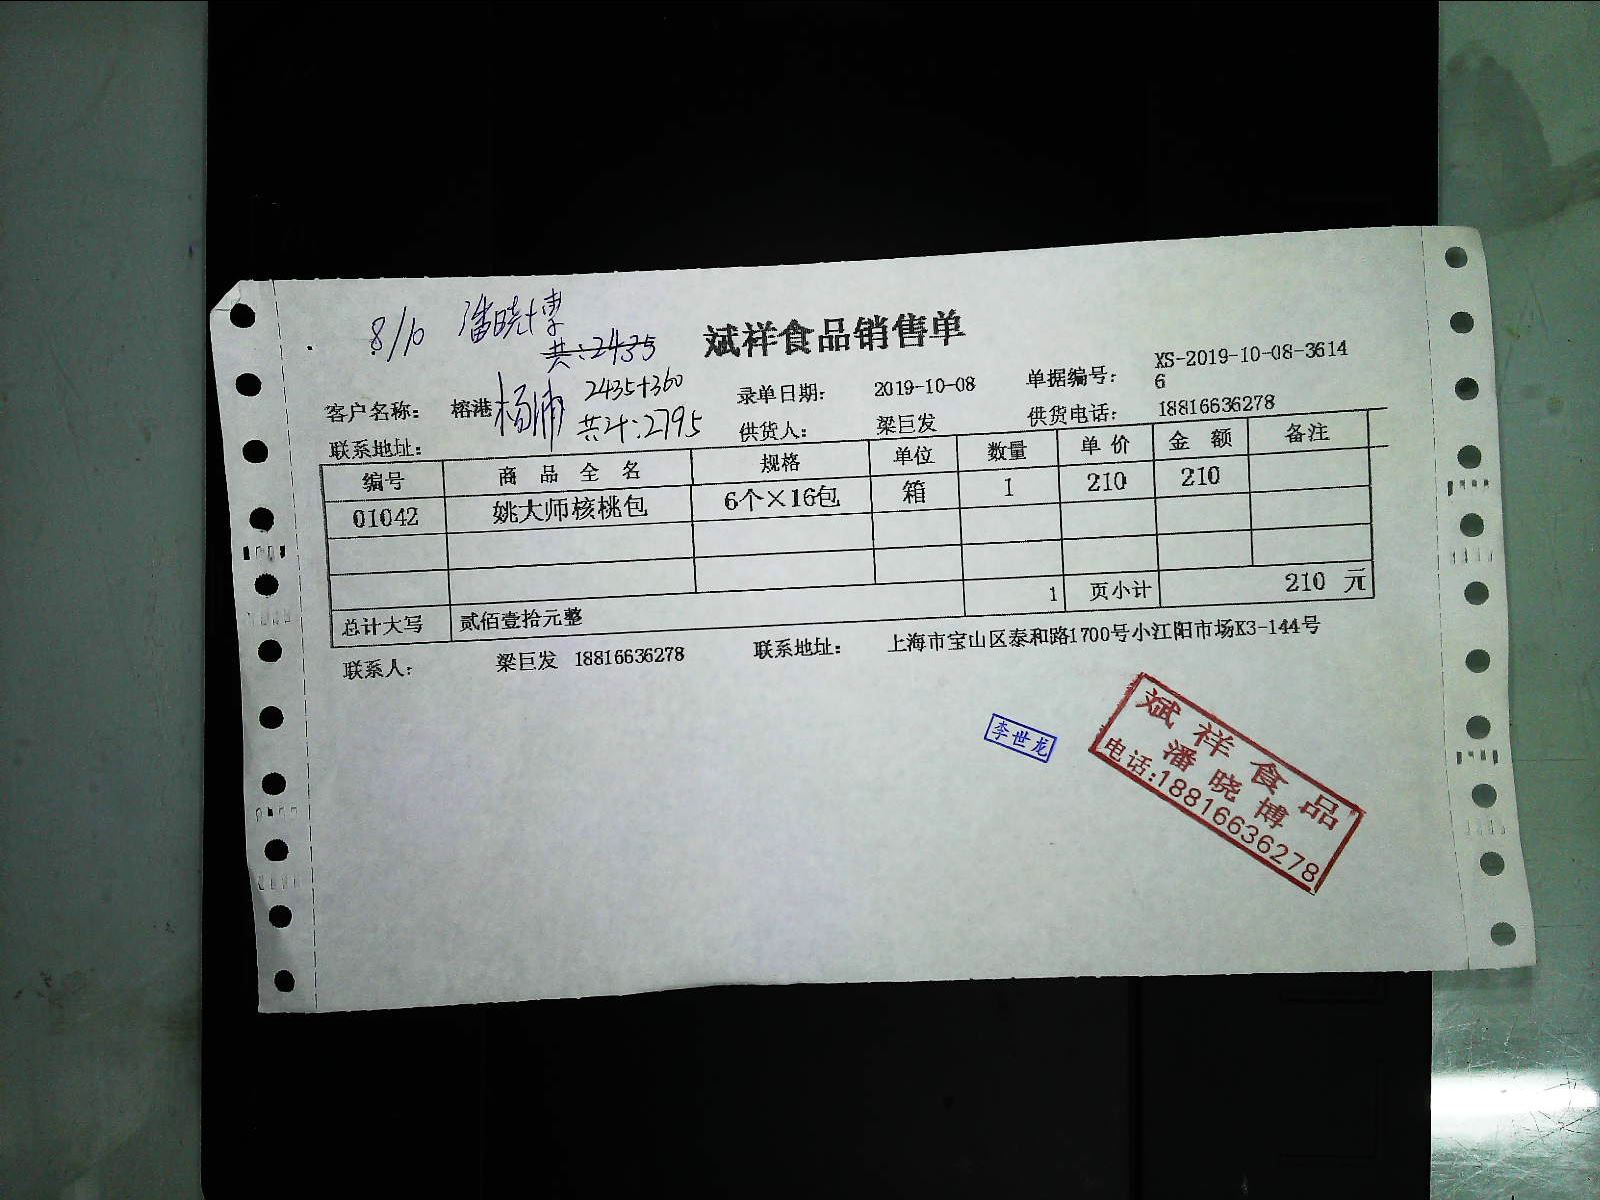 8/10 潘晓博
共:2435
斌祥食品销售单
2435+360
共计:2795
客户名称: 榕港杨浦 录单日期: 2019-10-08 单据编号: XS-2019-10-08-3614
6
联系地址: 供货人: 梁巨发 供货电话: 18816636278
编号 商品全名 规格 单位 数量 单价 金额 备注
01042 姚大师核桃包 6个×16包 箱 1 210 210
总计大写 贰佰壹拾元整 1 页小计 210 元
联系人: 梁巨发 18816636278 联系地址: 上海市宝山区泰和路1700号小江阳市场K3-144号
李世龙
斌祥食品
潘晓博
电话:18816636278